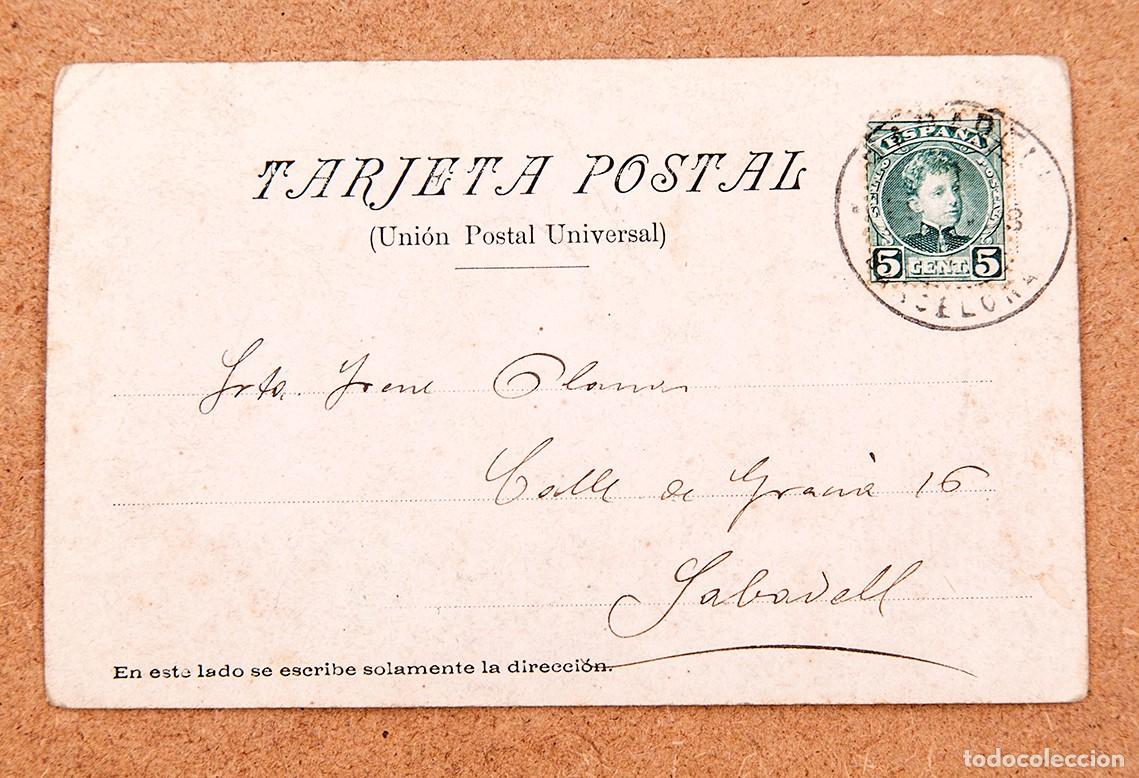 TARJETA POSTAL
(Unión Postal Universal)
ESPAÑA
SELLO POSTAL
5 CENT. 5
BARCELONA
Srta. Irene
Calle de Gracia 16
Sabadell
En este lado se escribe solamente la dirección.
todocoleccion